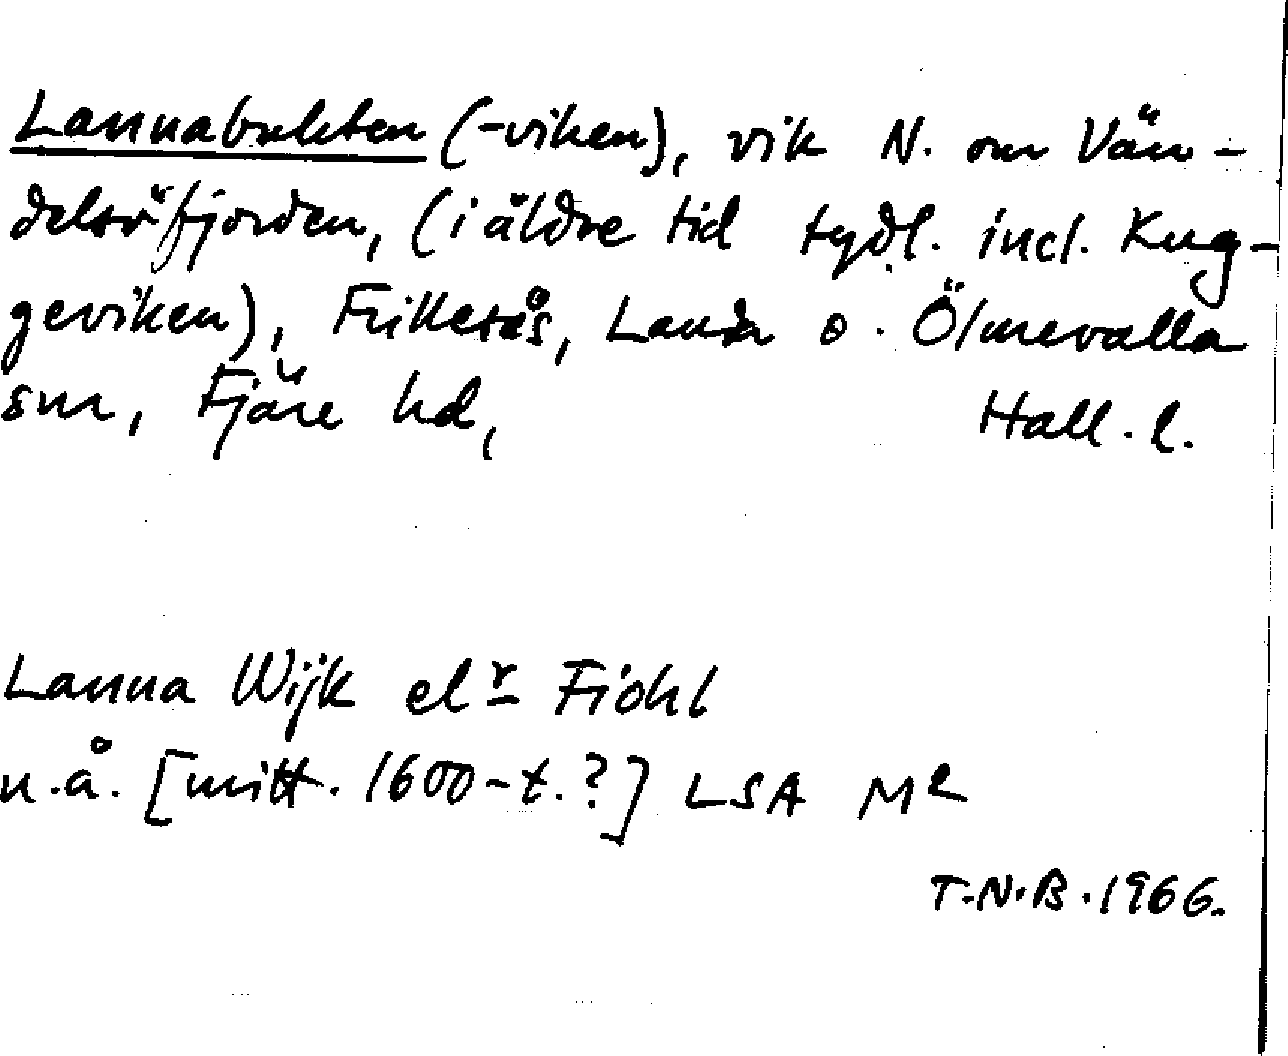 Lannabukten (-viken), vik N. om Vän-
delsöfjorden, (i äldre tid tydl. incl. Kug-
geviken), Frillesås, Landa o. Ölmevalla
snr, Fjäre hd, Hall. l.
Lanna Wijk elr Fiohl
u.å. [mitt. 1600-t.?] LSA
T.N.B. 1966.